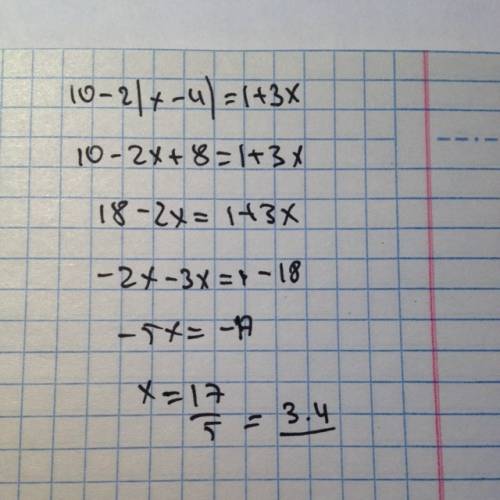 10-2|x-4|=1+3x
10-2x+8=1+3x
18-2x=1+3x
-2x-3x=1-18
-5x=-17
x=17/5=3.4